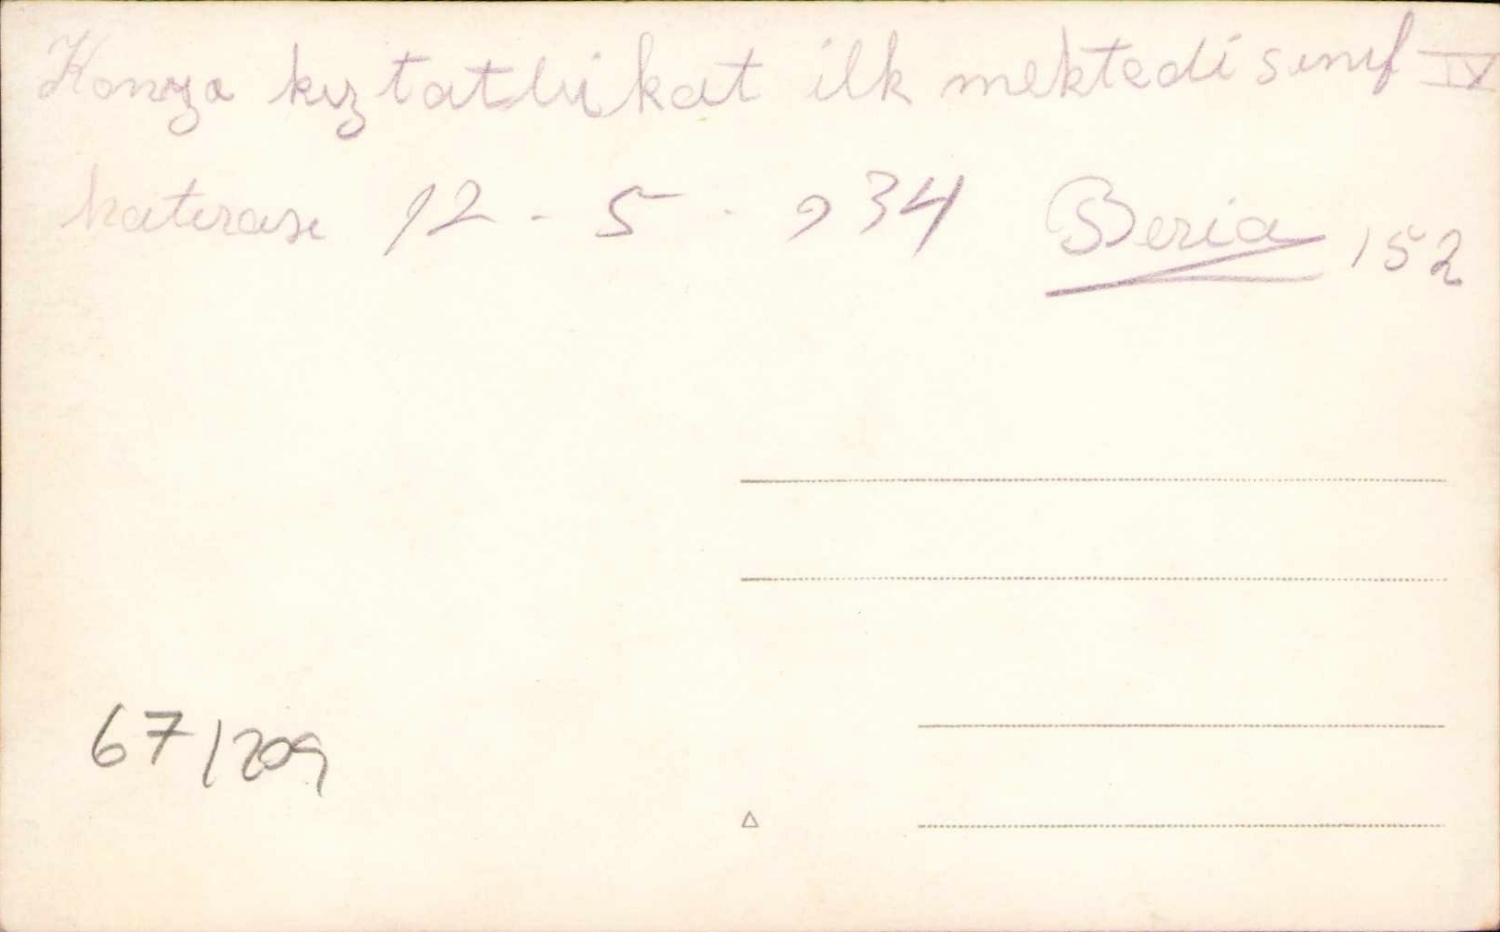 Konya kız tatbikat ilk mektedi sınıf IV
hatırası 12 - 5 - 934 Beria 152
67/209